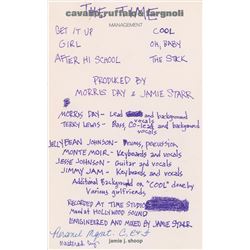 THE TIME
cavallo, ruffalo & fargnoli
MANAGEMENT
GET IT UP COOL
GIRL OH, BABY
AFTER HI SCHOOL THE STICK
PRODUCED BY
MORRIS DAY & JAMIE STARR
MORRIS DAY - Lead and background vocals
TERRY LEWIS - Bass, Co-lead and background vocals
JELLYBEAN JOHNSON - Drums, percussion
MONTE MOIR - Keyboards and vocals
JESSE JOHNSON - Guitar and vocals
JIMMY JAM - Keyboards and vocals
Additional Background on "COOL" done by
various girlfriends
RECORDED AT TIME STUDIO
Mixed at HOLLYWOOD SOUND
ENGINEERED AND MIXED by JAMIE STARR
Personal Mgmt. C, R & F
mastered by
jamie j. shoop